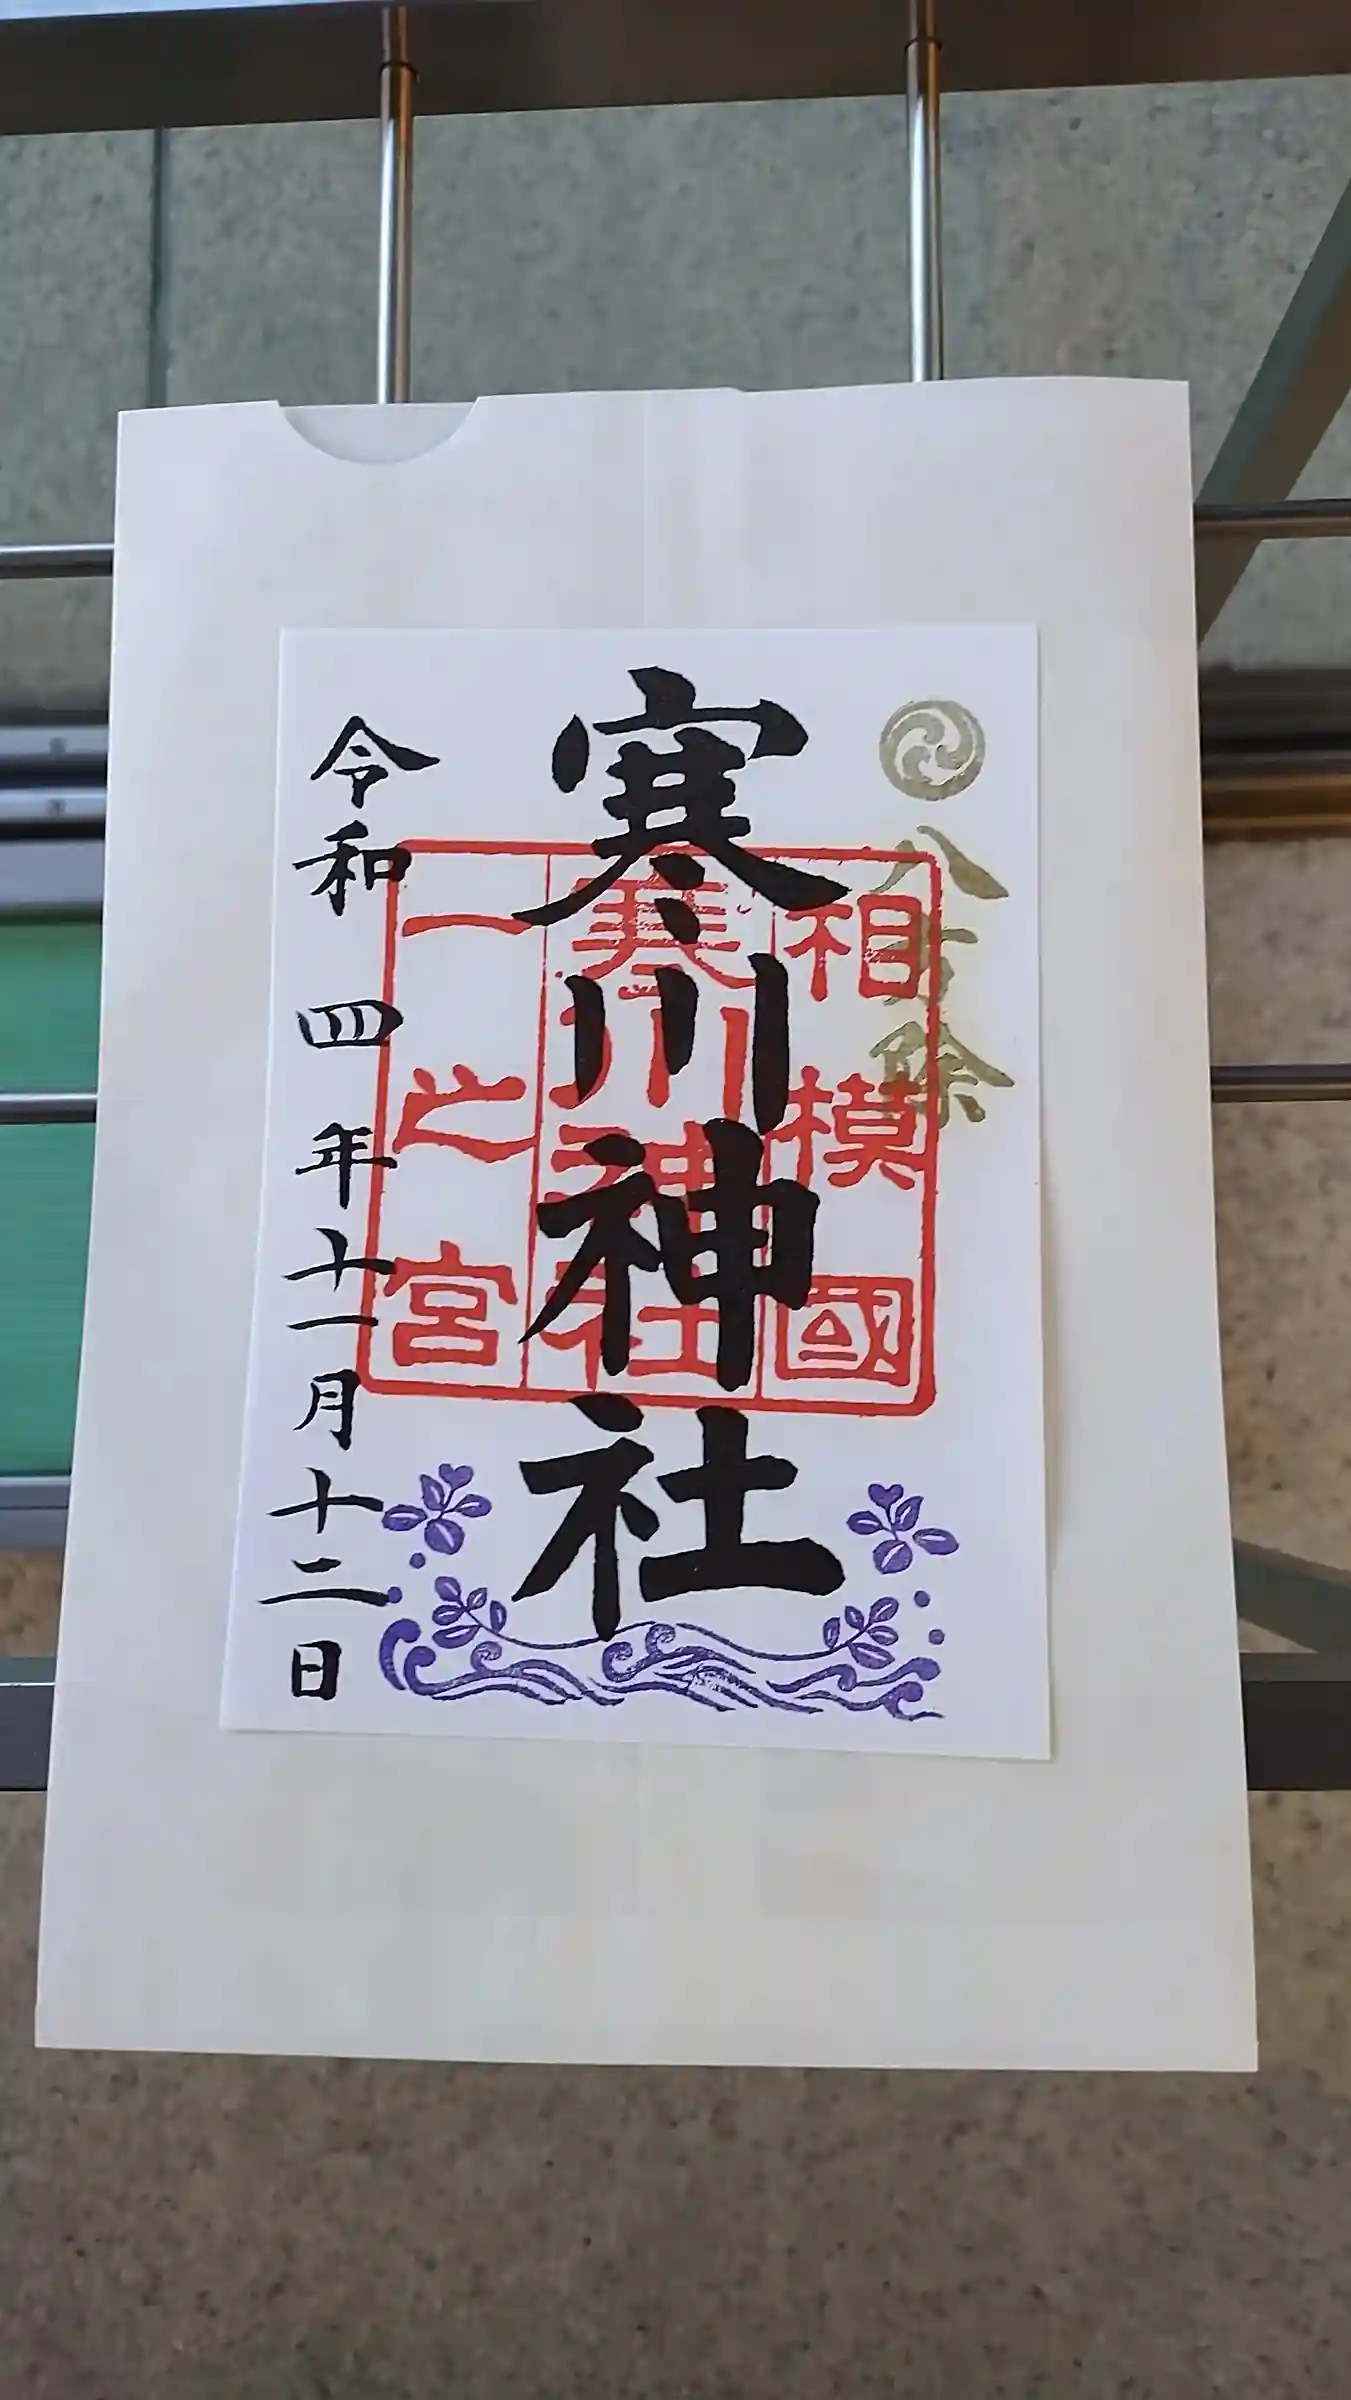 八方除
寒川神社
相模國
寒川神社
一之宮
令和四年十一月十二日